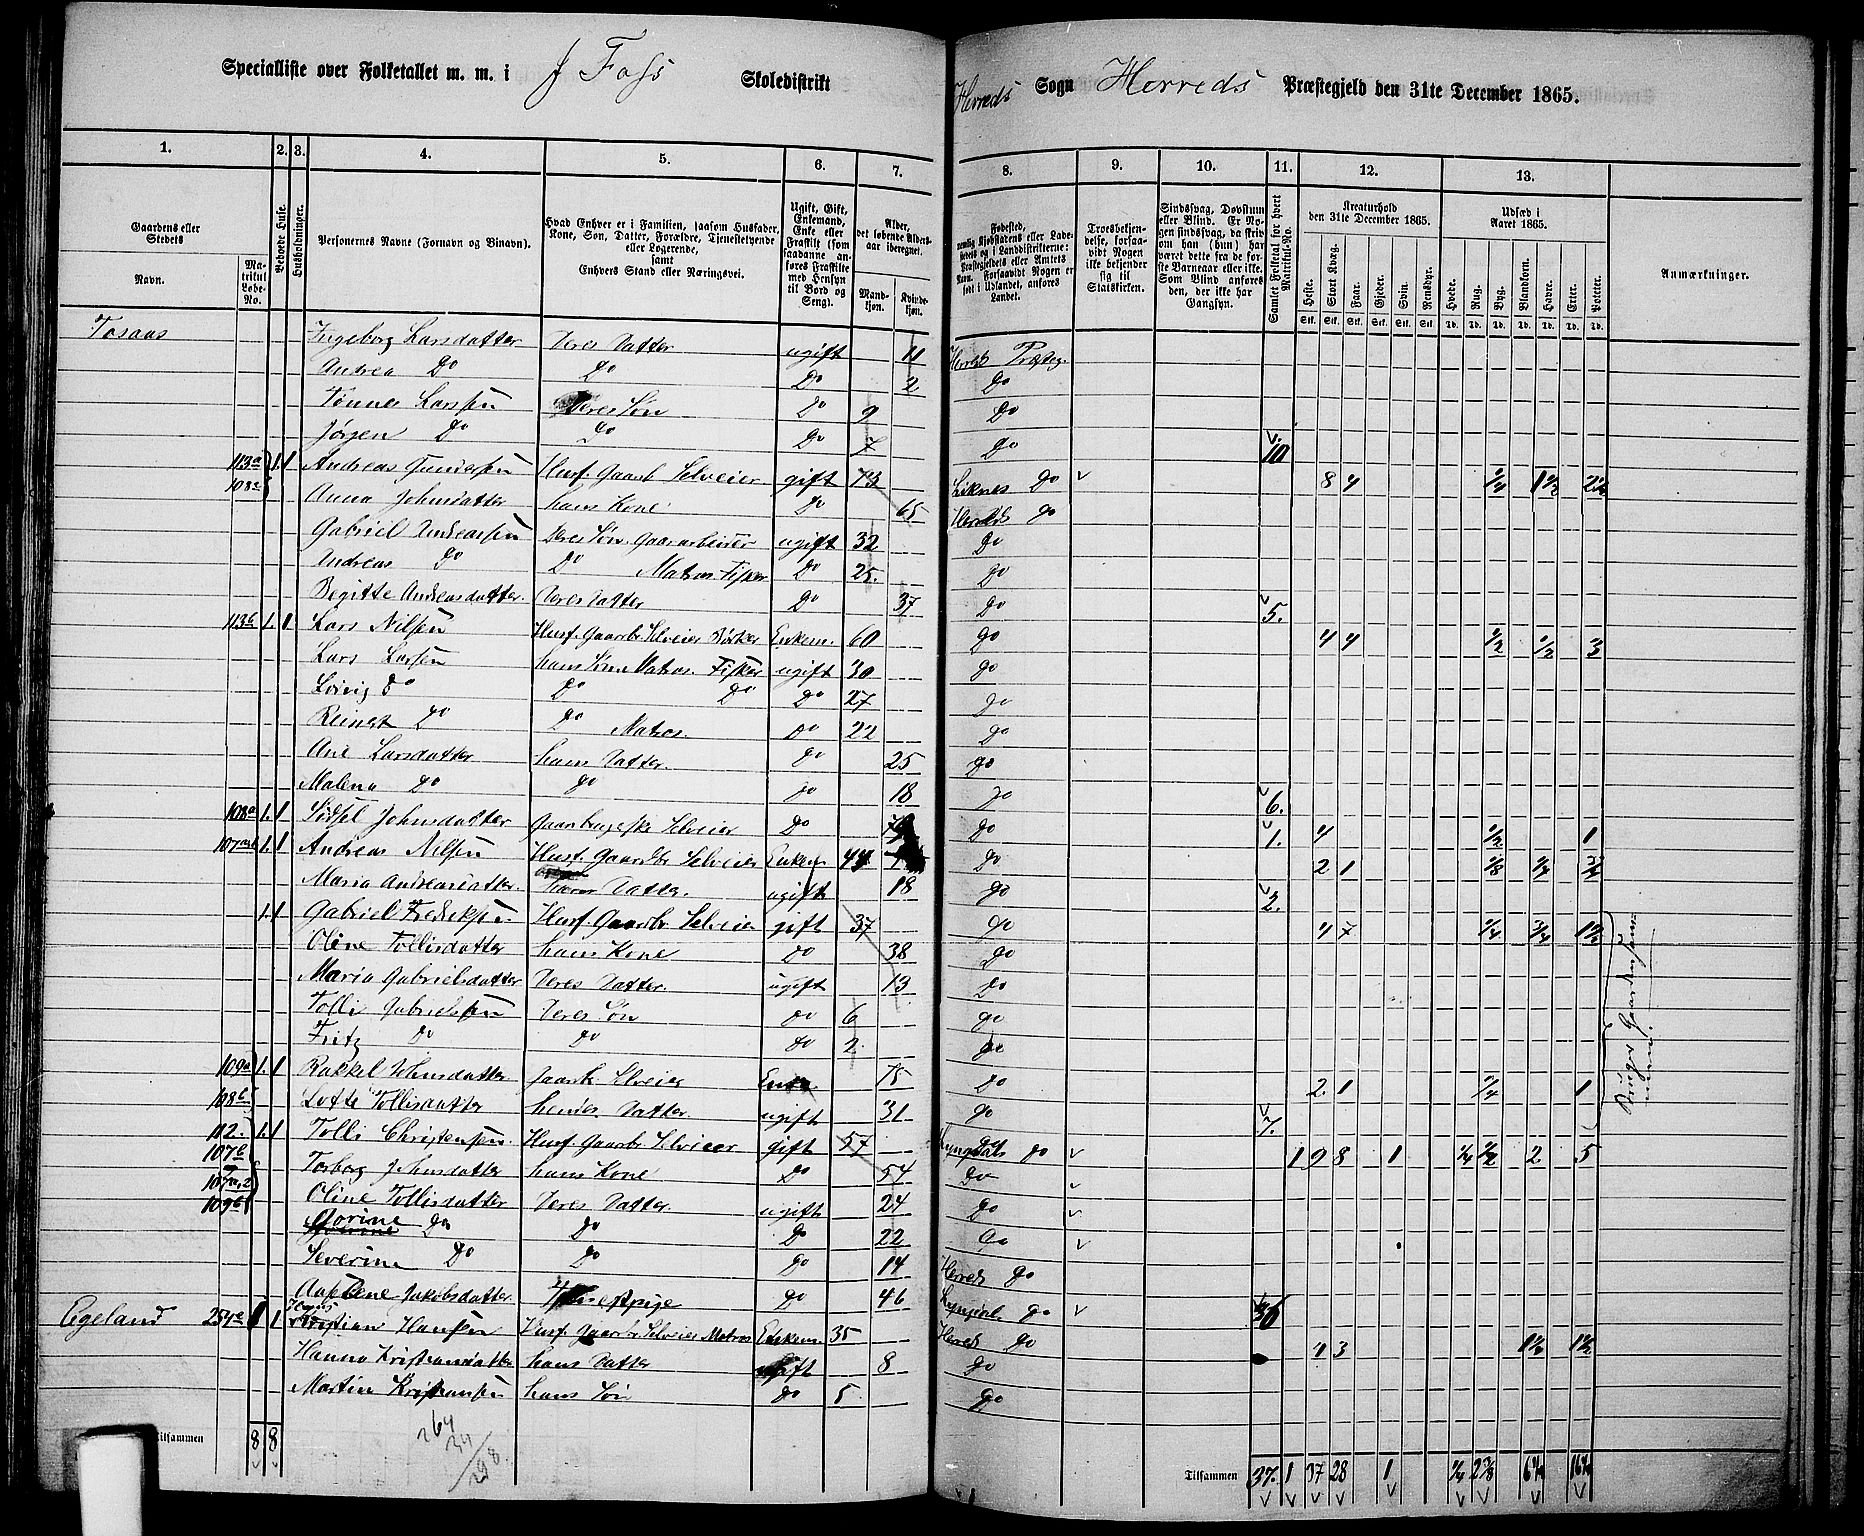 Specialliste over Folketallet m. m. i J Foss Skoledistrikt Herreds Sogn Herreds Præstegjeld den 31te December 1865.
1. 2. 3. 4. 5. 6. 7. 8. 9. 10. 11. 12. 13.
Gaardens eller Stedets
Navn. Matrikul Løbe-No.
Beboede Huse.
Husholdninger.
Personernes Navne (Fornavn og Tilnavn).
Hvad Enhver er i Familien, saasom Husfader, Kone, Søn, Datter, Forældre, Tjenestetyende eller Logerende, samt Enhvers Stand eller Næringsvei.
Ugift, Gift, Enkemand, Enke eller Fraskilt (som saadanne anføres Fraskilte med Hensyn til Bord og Seng).
Alder, det løbende Aldersaar iberegnet.
Mandkjøn. Kvindekjøn.
Fødested, nemlig Kjøbstadens eller Ladestedets og i Landdistrikterne: Præstegjeldets eller Amtets Navn. Forsaavidt Nogen er født i Udlandet, anføres Landet.
Troesbekjendelse, forsaavidt Nogen ikke bekjender sig til Statskirken.
Sindssvag, Døvstum eller Blind. Er Nogen sindssvag, da skriv om han (hun) har været dette fra de første Barneaar eller ikke. Som Blind anføres den, der ikke har Gangsyn.
Samlet Folketal for hvert Matrikul-No.
Kreaturhold den 31te December 1865.
Heste. Stort Kvæg. Faar. Gjeder. Svin. Rensdyr.
Udsæd i Aaret 1865.
Hvede. Rug. Byg. Blandkorn. Havre. Erter. Poteter.
Anmærkninger.
Tosaas Ingeborg Larsdatter Deres Datter ugift 11 Herreds Præsteg.
Andrea Do Do Do 2 Do
Tønnes Larssen Deres Søn Do 9 Do
Jørgen Do Do Do 7 Do 10
113a 108c 1. 1 Andreas Gundersen Husf. Gaardb Selveier gift 73 Liknes Do 8 4 1/4 1 1/2
Anna Johnsdatter hans Kone Do 65 Herreds Do
Gabriel Andreassen Deres Søn Gaardarbeider ugift 32 Do
Andreas Do Do Matros. Fisker Do 25. Do
Begitte Andreasdatter. Deres Datter Do 37 Do 5.
113b 1. 1 Lars Nilsen Husf. Gaardbr Selveier Bødker Enkem. 60 Do 4 4 1/2 1/2 3
Lars Larsen hans Søn Matros. Fisker ugift 30 Do
Lovig Do Do Do Do 27 Do
Reinert Do Do Matros. Do 22 Do
Ane Larsdatter hans Datter. Do 25 Do
Malena Do Do Do 18 Do 6.
108a 1. 1 Johnsdatter Gaardbrugerske Selveier Do Do 1. 4 1/2 1
1. 1 Andreas Nilsen Husf. Gaardbr Selveier Enkem 44 Do 2 1 1/8
Maria Andreasdatter. Datter. ugift 18 Do 2.
1. 1 Gabriel Fredriksen Husf. Gaardbr Selveier gift 37 Do 4 7 1/4 3/4 1 1/2
Oline Tollisdatter hans Kone Do 38 Do
Maria Gabrielsdatter Deres Datter. ugift 13 Do
Tolli Gabrielsen Deres Søn Do 6 Do
Fritz Do Do Do 2. Do
109a 1. 1 Rakkel Johnsdatter Gaardb. Selveier Enke 75 Do 2. 1 1/4 1
108b Lotte Tollisdatter hendes Datter. ugift 31 Do 7.
112. 1. 1 Tolli Christensen. Husf. Gaardbr Selveier gift 57 Lyngdals Do 1 9 8 1 1/4 1/2 2 5
107b Torborg Johnsdatter hans Kone Do 54 Do
109b Oline Tollisdatter Deres Datter. ugift 24 Do
Gorine Do Do Do 22 Do
Severine Do Do Do 14 Herreds Do
Jakobsdatter Do 46 Lyngdal Do 6
Egeland 254a 1 1 Kristian Hansen Husf. Gaardbr Selveier Matros Enkem. 35 Herreds Do 4 3 1 1/2 1 1/2
Hanna Kristiansdatter hans Datter ugift 8 Do
Martin Kristiansen hans Søn Do 5. Do
264
34
298
Tilsammen 8 8
Tilsammen 37. 1 37 28 1